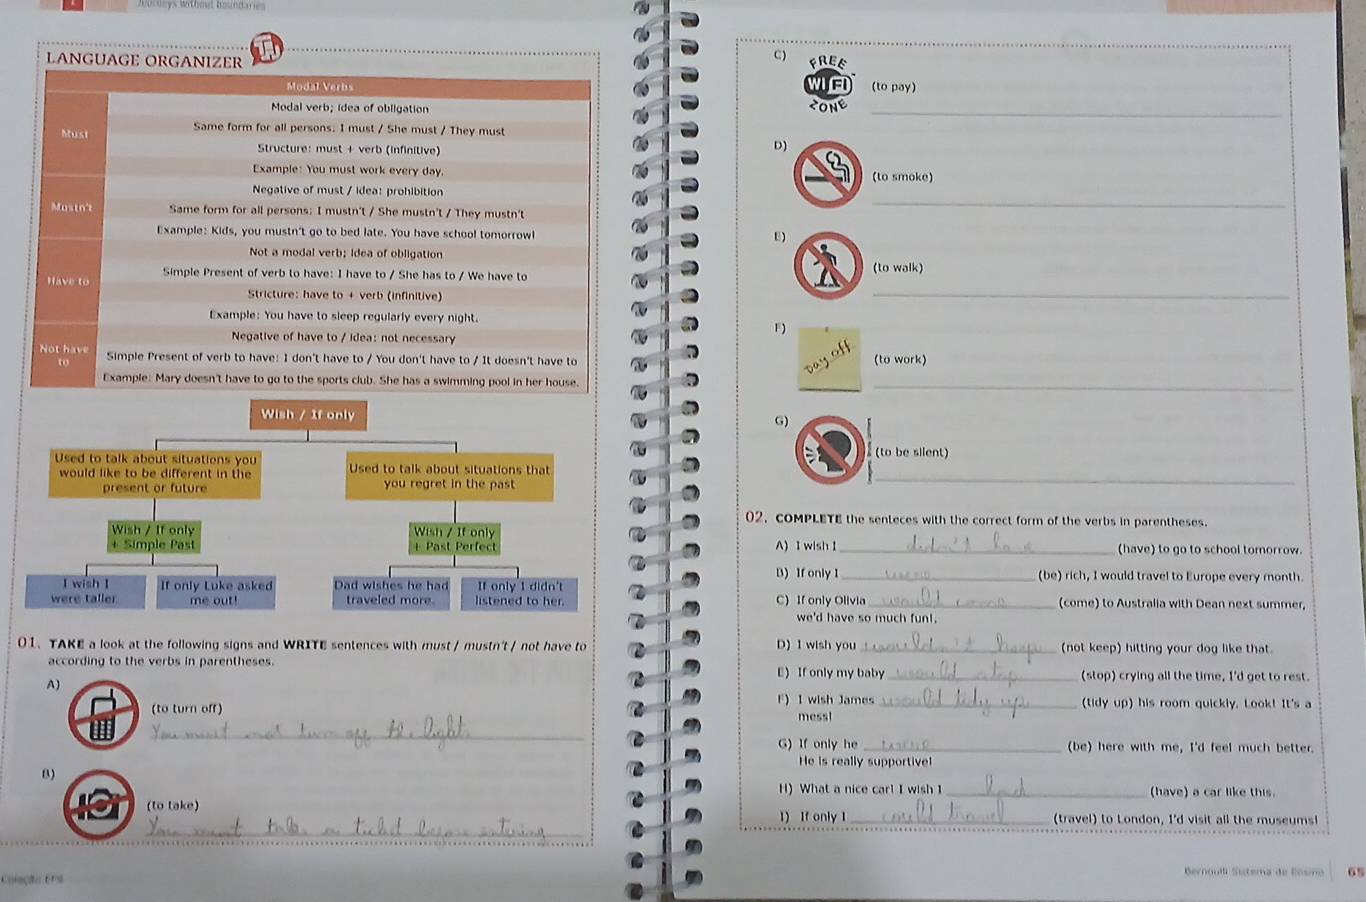 Journeys without boundaries
LANGUAGE ORGANIZER
Modal Verbs
Must
Modal verb; idea of obligation
Same form for all persons: I must / She must / They must
Structure: must + verb (infinitive)
Example: You must work every day.
Mustn't
Negative of must / idea: prohibition
Same form for all persons: I mustn't / She mustn't / They mustn't
Example: Kids, you mustn't go to bed late. You have school tomorrow!
Have to
Not a modal verb; idea of obligation
Simple Present of verb to have: I have to / She has to / We have to
Stricture: have to + verb (infinitive)
Example: You have to sleep regularly every night.
Not have
to
Negative of have to / idea: not necessary
Simple Present of verb to have: I don't have to / You don't have to / It doesn't have to
Example: Mary doesn't have to go to the sports club. She has a swimming pool in her house.
Wish / If only
Used to talk about situations you
would like to be different in the
present or future
Used to talk about situations that
you regret in the past
Wish / If only
+ Simple Past
Wish / If only
+ Past Perfect
I wish I
were taller.
If only Luke asked
me out!
Dad wishes he had
traveled more.
If only I didn't
listened to her.
01. TAKE a look at the following signs and WRITE sentences with must / mustn't / not have to
according to the verbs in parentheses.
A)
(to turn off)
You must not turn off the light
B)
(to take)
You must take a ticket before entering
C)
FREE
WI FI
ZONE
(to pay)
D)
(to smoke)
E)
(to walk)
F)
Day off
(to work)
G)
(to be silent)
02. COMPLETE the senteces with the correct form of the verbs in parentheses.
A) I wish I didn't have (have) to go to school tomorrow.
B) If only I were (be) rich, I would travel to Europe every month.
C) If only Olivia would come (come) to Australia with Dean next summer,
we'd have so much fun!.
D) I wish you wouldn't keep (not keep) hitting your dog like that.
E) If only my baby would stop (stop) crying all the time, I'd get to rest.
F) I wish James would tidy up (tidy up) his room quickly. Look! It's a
mess!
G) If only he were (be) here with me, I'd feel much better.
He is really supportive!
H) What a nice car! I wish I had (have) a car like this.
I) If only I could travel (travel) to London, I'd visit all the museums!
Coleção EF9
Bernoulli Sistema de Ensino
65